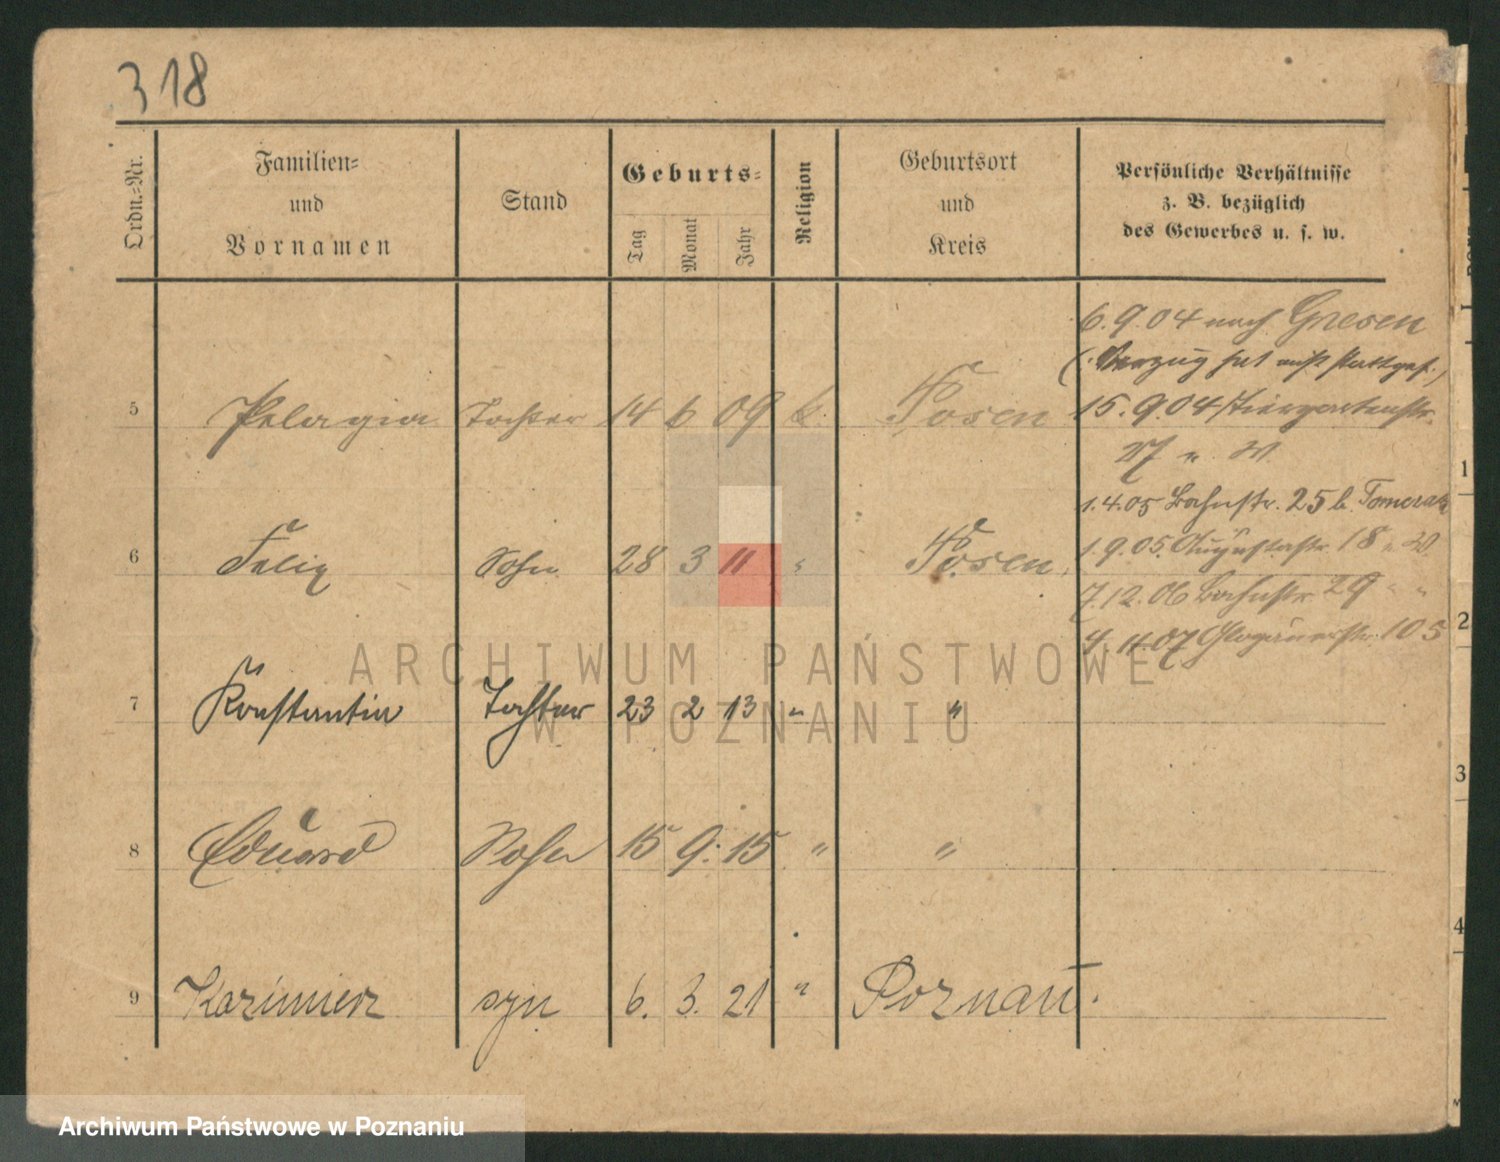 318
Ordn.=Nr.
Familien=
und
Vornamen
Stand
Geburts=
Tag
Monat
Jahr
Religion
Geburtsort
und
Kreis
Persönliche Verhältnisse
z. B. bezüglich
des Gewerbes u. s. w.
6.9.04 nach Gnesen
(Verzug hat nicht stattgef.)
5 Pelagia Tochter 14 6 09 k. Posen
15.9.04 Tiergartenstr.
27 " W.
1.4.05 Bahnstr. 25 b. Tomczak
6 Felix Sohn 28 3 11 " Posen
1.9.05. Augustastr. 18 " W.
7.12.06 Bahnstr. 29 " "
4.11.07 Glogauerstr. 105
7 Konstantin Tochter 23 2 13 " "
8 Eduard Sohn 15 9. 15 " "
9 Kazimierz syn 6. 3. 21 " Poznań.
1
2
3
4
ARCHIWUM PAŃSTWOWE
W POZNANIU
Archiwum Państwowe w Poznaniu